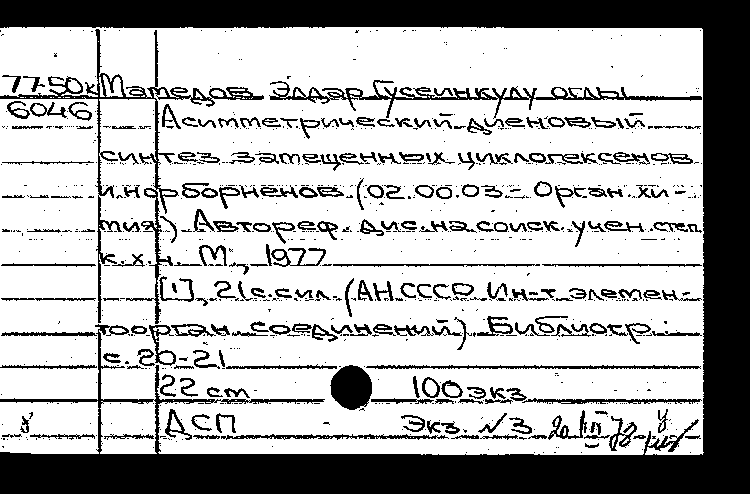 77-50к Мамедов Элдар Гусейнкулу оглы
6046 Асимметрический диеновый
синтез замещенных циклогексенов
и норборненов. (02.00.03 - Орган. хи-
мия) Автореф. дис. на соиск. учен. степ.
к. х. н. М., 1977
[1], 21 с. с ил. (АН СССР Ин-т элемен-
тоорган. соединений) Библиогр.:
с. 20-21
22 см 100 экз
ДСП Экз. №3 20/III 78